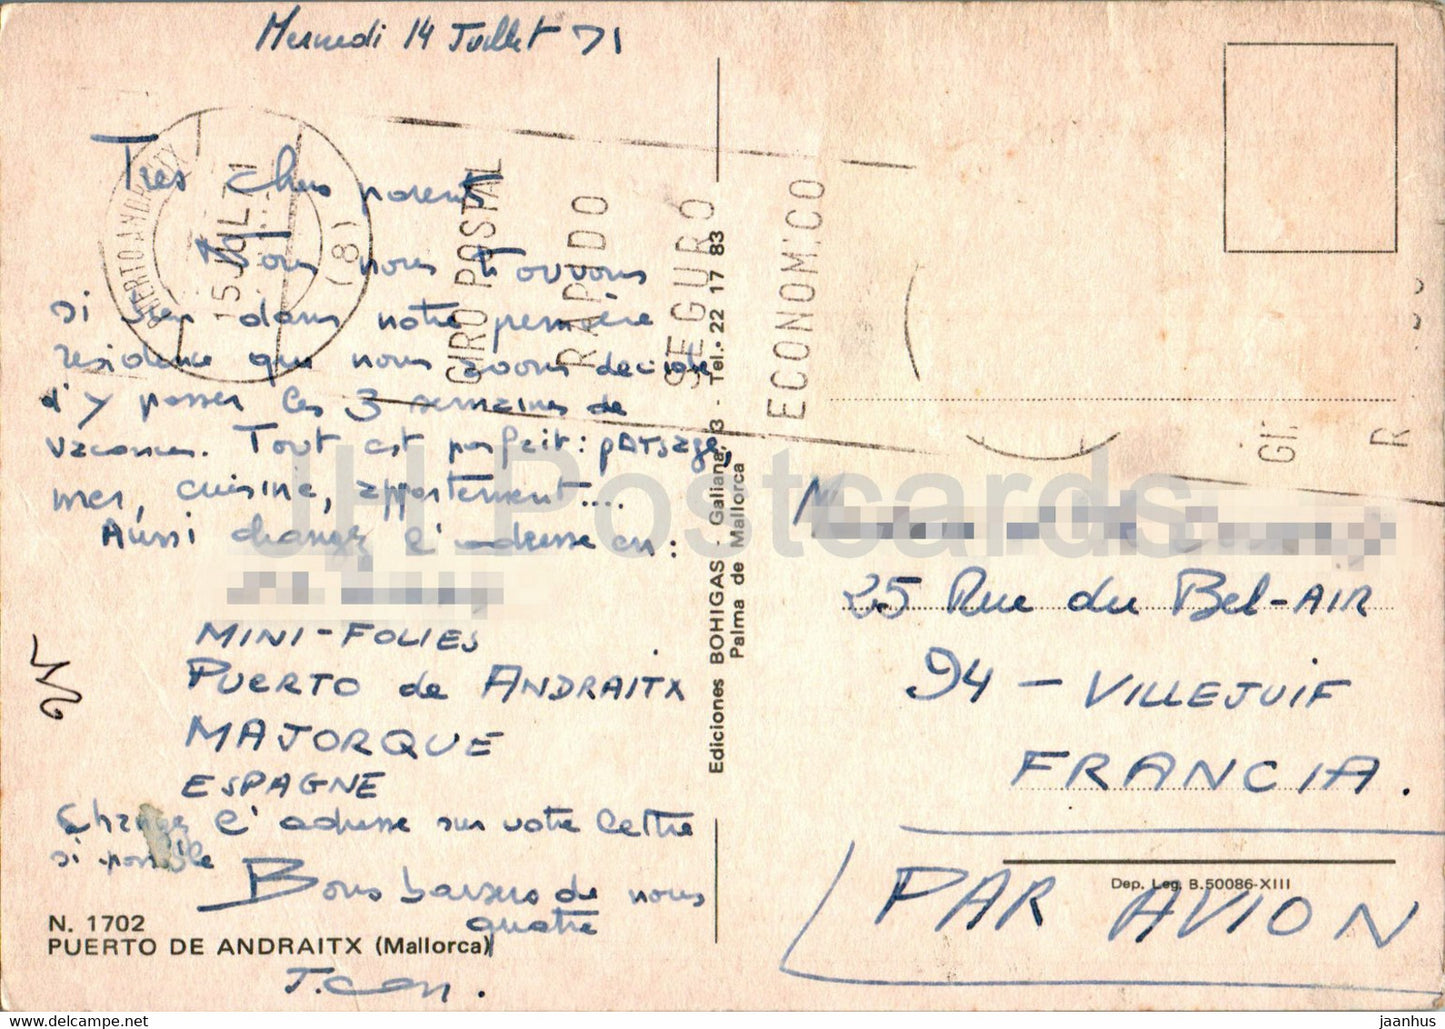 Mercredi 14 Juillet 71
Très chers parents
Nous nous trouvons
si bien dans notre première
résidence que nous avons décidé
d'y passer les 3 semaines de
vacances. Tout est parfait : paysage,
mer, cuisine, appartement....
Aussi changez l'adresse en :
MINI-FOLIES
PUERTO de ANDRAITX
MAJORQUE
ESPAGNE
Changez l'adresse sur votre lettre
si possible
Bons baisers de nous
quatre
N. 1702
PUERTO DE ANDRAITX (Mallorca)
PUERTO ANDRAITX
15 JUL. 71
(8)
GIRO POSTAL
RAPIDO
SEGURO
ECONOMICO
Ediciones BOHIGAS - Galiana, 3 - Tel. 22 17 83
Palma de Mallorca
25 Rue du Bel-AIR
94 - VILLEJUIF
FRANCIA.
Dep. Leg. B.50086-XIII
PAR AVION
JH Postcards
www.delcampe.net
jaanhus